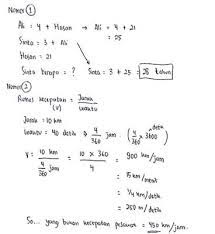 Nomer ①
Ali = 4 + Hasan → Ali = 4 + 21
= 25
Sinta = 3 + Ali
Hasan = 21
Sinta berapa = ? Sinta = 3 + 25 = 28 tahun
Nomer ②
Rumus kecepatan = Jarak / waktu
Jarak = 10 km
waktu = 40 detik → 4/360 jam. (4/3600)
V = 10 km / 4/360 jam = 10 x 360 / 4 = 900 km/jam
= 15 km/menit
= 1/4 km/detik
= 250 m/detik
So... yang bukan kecepatan pesawat = 450 km/jam